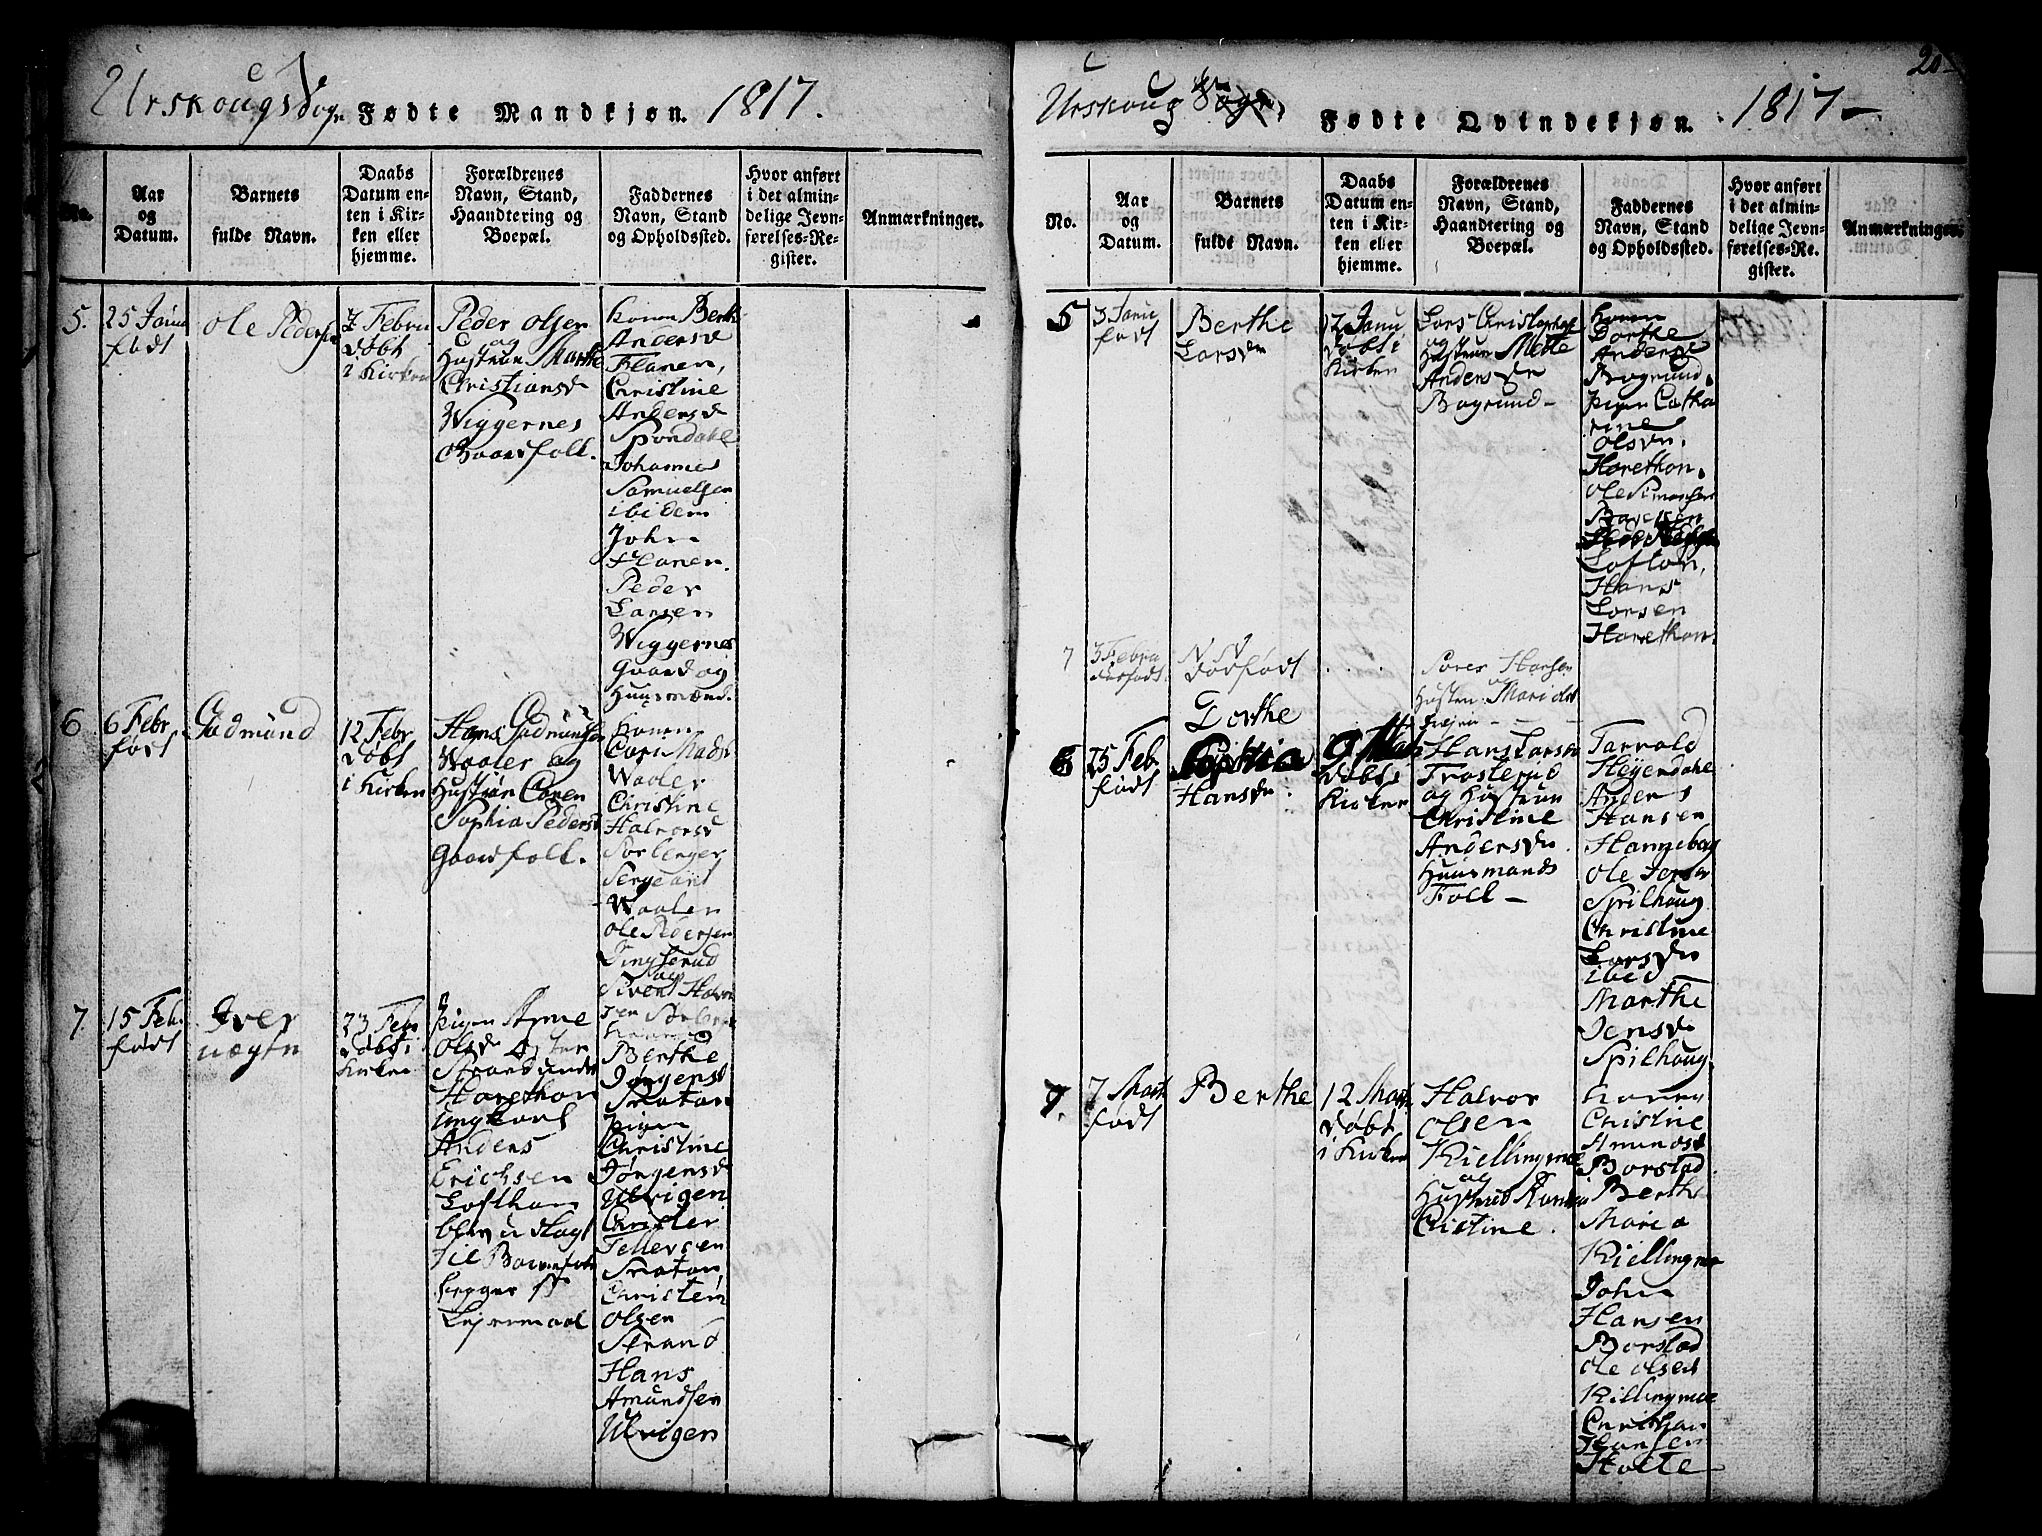 Urskougs Sogn Fødte Mandkjøn. 1817.
No.
Aar
og
Datum.
Barnets
fulde Navn.
Daabs
Datum en-
ten i Kir-
ken eller
hjemme.
Forældrenes
Navn, Stand,
Haandtering og
Boepæl.
Faddernes
Navn, Stand
og Opholdssted.
Hvor anført
i det almin-
delige Jevn-
førelses-Re-
gister.
Anmærkninger.
5.
25 Janu
født
Ole Peders
2 Febru
døbt
i Kirken
Peder Olsen
og
Hustrue Marthe
Christiansd
Wiggernes
Gaardfolk.
Konen Berthe
Andersd
Flanen,
Christine
Andersd
Spondahl
Johannes
Samuelsen
ibidem
John
Flanen.
Peder
Larsen
Wiggernes
Gaard og
Huusmænd.
6
6 Febr
født
Gudmund
12 Febr
døbt
i Kirken
Hans Gudmunsen
Waaler og
Hustrue Caren
Sophia Pedersd
Gaardfolk.
Konen
Caren Madsd
Waaler
Christine
Halvorsd
Sorberger
Sergeant
Waaler
Ole Pedersen
Tingsrud
og
Sivent Halvor
sen Sorberg
7
15 Feb.
født
Iver
uægte
23 Feb
døbt i
Kirken
Pigen Anne
Olsd
Strandunder
Harethon
Ungkarl
Anders
Erichsen
Lofthon
blev udlagt
til Barnefader
begges 1ste
Lejermaal
Konen
Berthe
Jørgensd
Præton
Pigen
Christine
Jørgensd
Ulvigen
Christer
Tellefsen
Præton
Christen
Olsen
Strand
Hans
Amundsen
Ulvigen
20
Urskoug Sogn, Fødte Qvindekjøn. 1817
No.
Aar
og
Datum.
Barnets
fulde Navn.
Daabs
Datum en-
ten i Kir-
ken eller
hjemme.
Forældrenes
Navn, Stand,
Haandtering og
Boepæl.
Faddernes
Navn, Stand
og Opholdssted.
Hvor anført
i det almin-
delige Jevn-
førelses-Re-
gister.
Anmærkninger.
5
3 Janu
født
Berthe
Larsdr
12 Janu
døbt i
Kirken
Lars Christophers
og
Hustrue Mette
Andersdr
Bogrund
Konen
Dorthe
Anders
Bogrund.
Pigen Catha
rine
Olsdr.
Harethon.
Ole Simonsen
Lofton,
Hans
Larsen
Harethon.
7
3 Febru
dødfødt
N N
Dødfødt
Hansen
8
25 Feb.
født
Dorthe
Hansdr.
9 Mart
døbt i
Kirken
Hans Larsen
Trosterud
og Hustrue
Christine
Andersdr
Huusmands
Folk
Tarvald
Heyerdahl
Anders
Hansen
Hangebag
Ole Jensen
Spilhaug
Christine
Larsdr
ibid
Marthe
Jensd
Spilhaug
9.
7 Mart
født
Berthe
12 Mart
døbt
i Kirken
Halvor
Olsen
Kiellingmoe
og
Hustrue Karen
Cristine.
Konen
Christine
Amundsd
Borstad
Berthe
Maria
Kiellingmoe
John
Hansen
Borstad
Ole Olsen
Killingmoe
Christian
Hansen
Holte